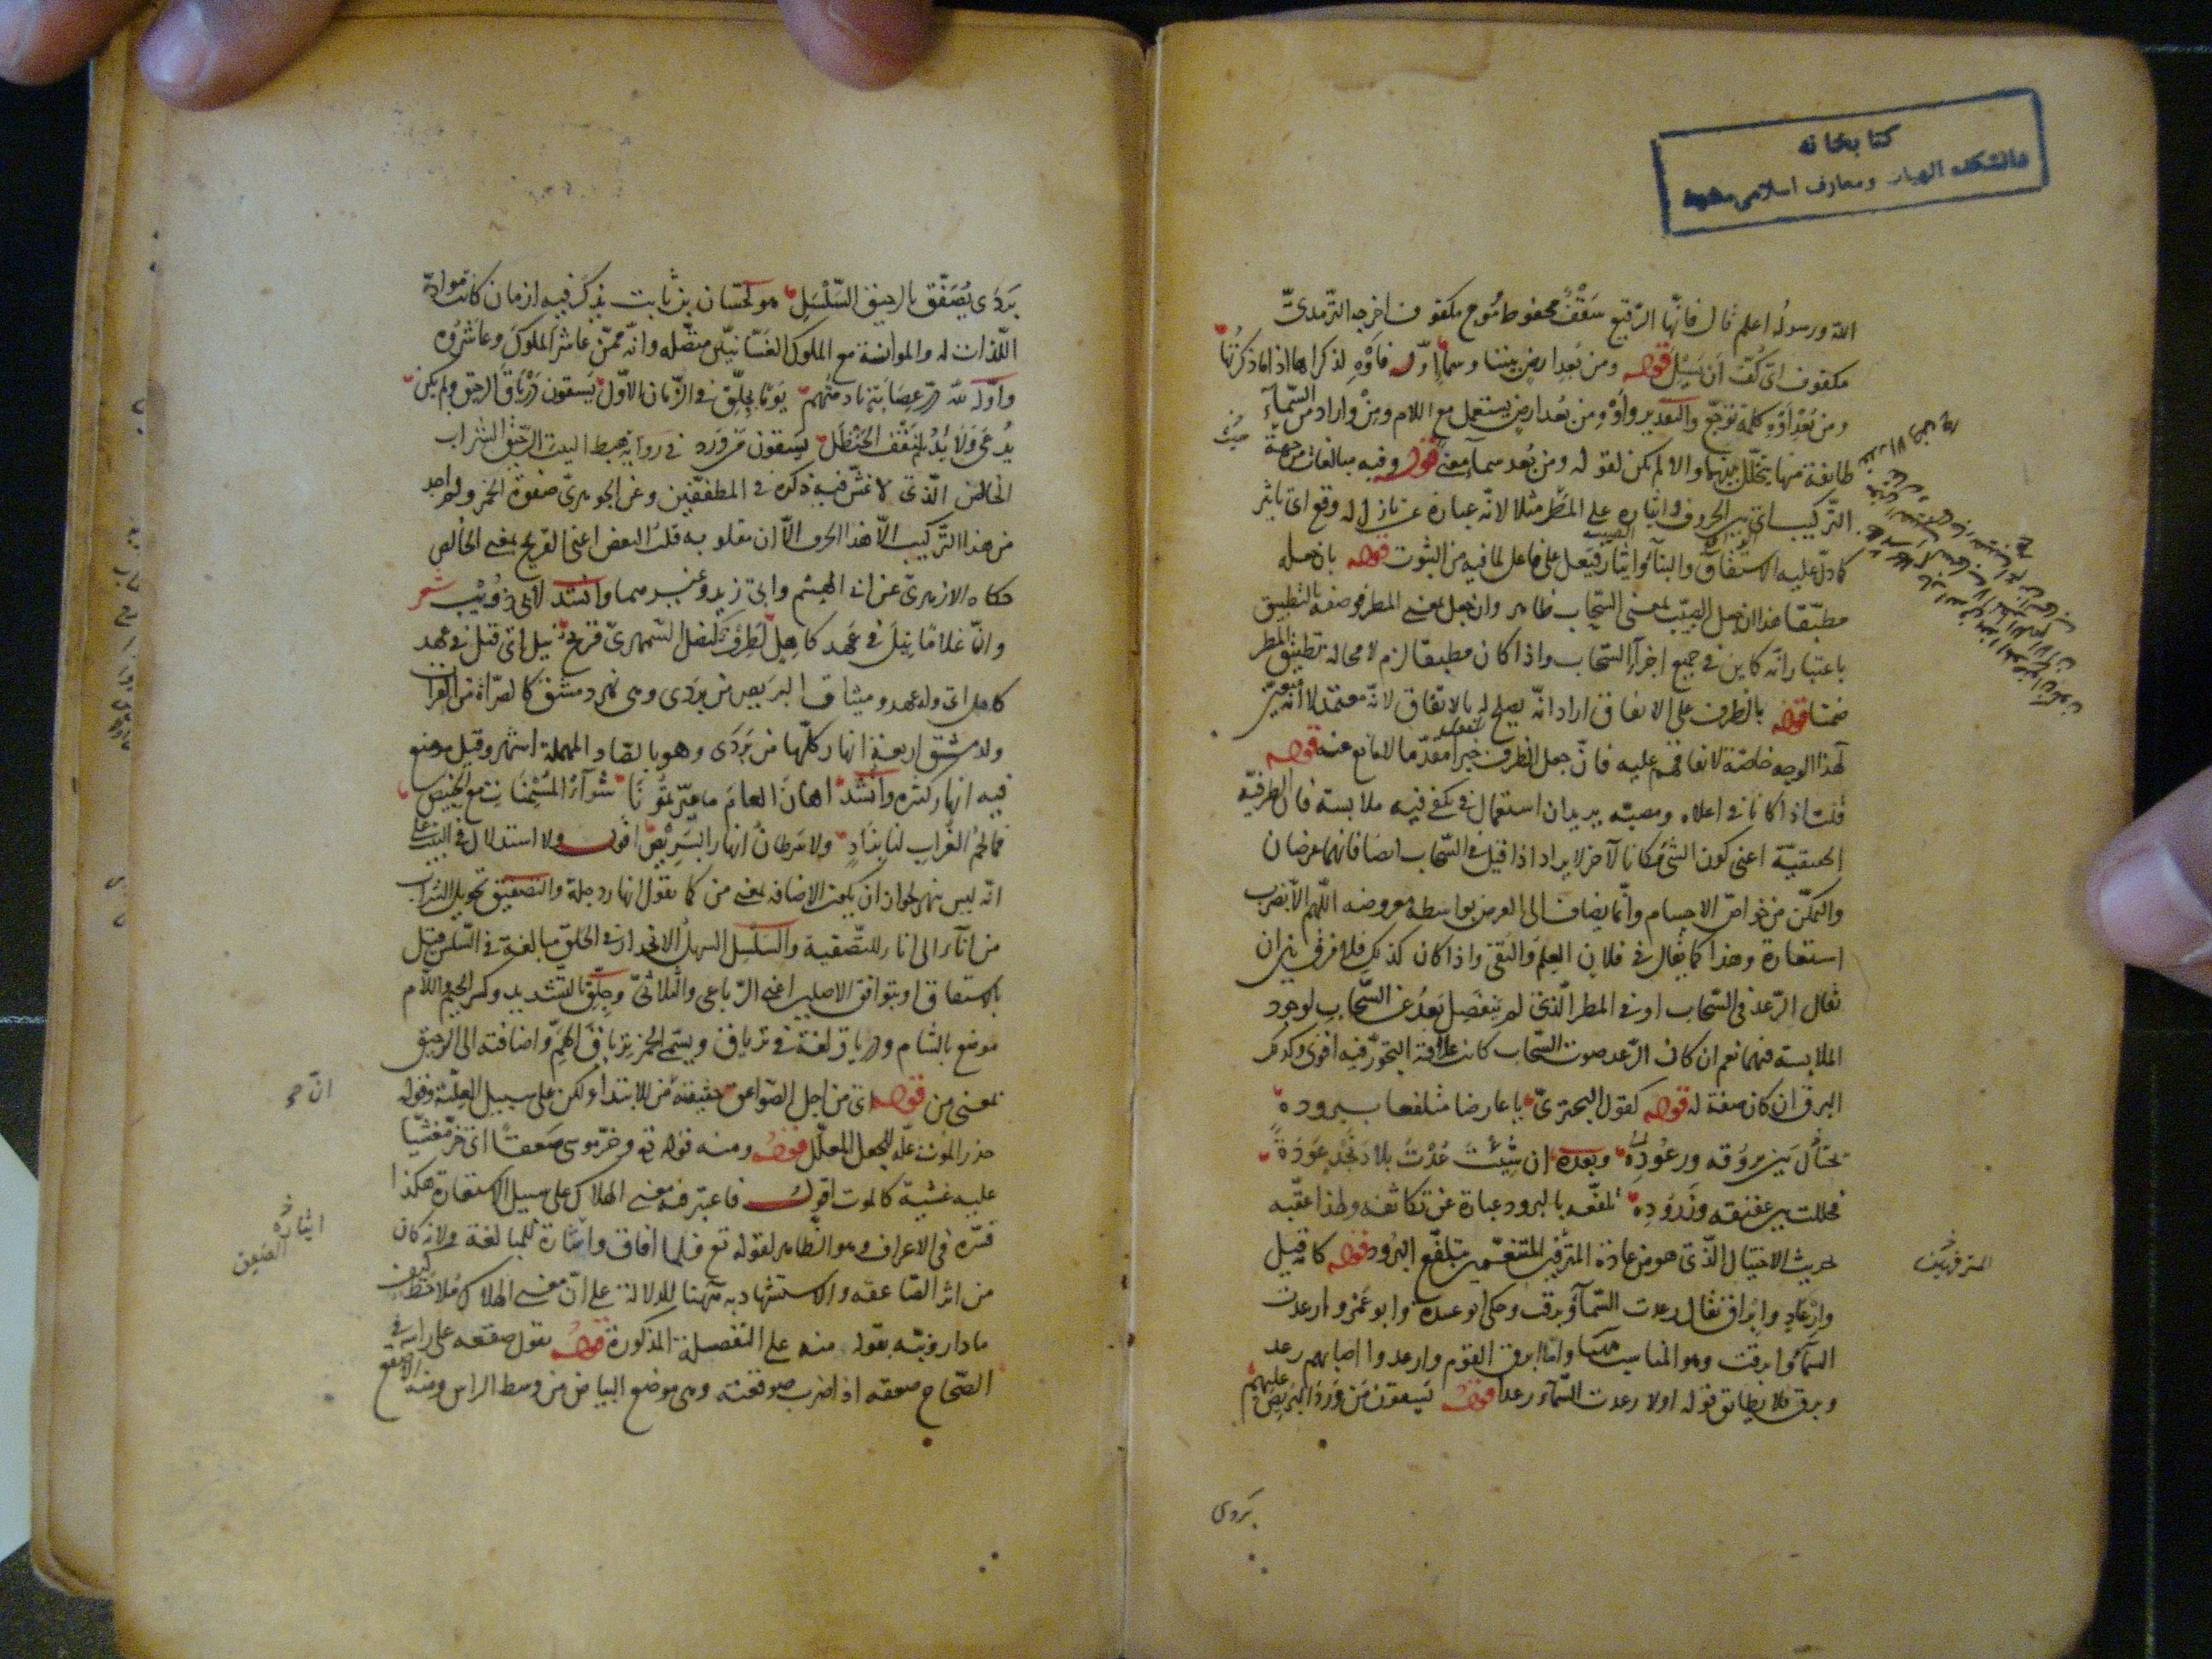 كتابخانه
دانشكده الهيات ومعارف اسلامى مشهد
الله ورسوله اعلم قال فانّها الرّقيع سَقْفٌ محفوظ مَوج مكفوف اخرجه التّرمذىّ
مكفوف اى كُفّت ان يَسيل قوله ومن بُعد ارض بيننا وسماءِ اوّله فاَوْهِ لذكراها اذا ما ذكرتُها
ومن بُعْدِ اَوْهِ كلمة توجّع والتقدير واَوْهِ ومن بُعد ارض يستعمل مع اللام ومِنْ واراد من السّماء
طائفة منها يتخلّل بينهما والا لم يكن لقوله ومن بُعد سماء معنىً قوله وفيه مبالغات من جهة
حيث
التّركيب اى من الحروف وايثاره على المطر مثلا لانّه عبارة عن نازل له وقع اى تاثر
كما دلّ عليه الاشتقاق والبناء وايثار فيعل على فاعل لما فيه من الثبوت قوله بان جعله
مطبّقا هذا ان جعل الصيّب بمعنى السّحاب ظاهر وان جعل بمعنى المطر فوصفه بالتطبيق
باعتبار انّه كاين فى جميع اجزآء السّحاب واذا كان مطبقا لزم لا محالة تطبيق المطر
ضمنا قوله بالظرف على الاتفاق اراد انّه يصلح له بالاتّفاق لانّه معتمد لا انّه متعيّن
لهذا الوجه خاصّة لاتفاقهم عليه فانّ جعل الظرف خبرا مقدّما لا مانع عنه قوله
قلت اذا كانا فى اعلاه ومصبّه يريد ان استعمال فى يكفى فيه ملابسة فان الظرفيّة
الحقيقيّة اعنى كون الشئ مكانا لآخر لا يراد اذا قيل فى السّحاب ايضا فانهما عرضان
والتمكّن من خواصّ الاجسام وانّما يضاف الى العرض بواسطة معروضه اللّهم الّا بضرب
استعارة وهذا كما يقال فى فلان العِلم والتقى واذا كان كذلك فلا فرق بين ان
يقال الرّعد فى السّحاب او فى المطر الّذى لم ينفصِل بَعدُ عن السّحاب لوجود
الملابسة فيهما نعم ان كان الرّعد صوت السّحاب كانت علاقة التجوّز فيه اقوى وكذلك
البرق ان كان صفة له قوله كقول البحترىّ يا عارضا متلفعا ببروده
يختال بين بروقه ورعُودِه وبعده ان شِئْتَ عُدْتُ بلاد نَجْدٍ عَوْدَةً
فحللت بين عقيقه وزَرُودِهِ تلفّعه بالبرود عبارة عن تكاثفه ولهذا عقّبه
بحديث الاختيال الّذى هو من عادة المترفين المتنعّمين بتلفّع البُرود قوله كانه قيل
المترفهين
وارْعَادٍ وابْراق يقال رعدت السّمآء وبرقت وحكى ابو عبيدة وابو عَمرو ارعدت
السّمآء وابرقت وهو المناسب ههنا وامّا ابرق القوم وارعدوا اصابهم رعد
وبرق فلا يطابق قوله اولا رعدت السّماء رعدا قوله يَسقون مَن وَرَدَ البَريصَ عليهم
بَردى
بَرَدَى يُصَفّق بالرحيق السّلسَلِ هو لحسّان بن ثابت يذكر فيه ازمان كانت مواتاة
اللّذات له والموانسة مع الملوك الغسّانيّين متصّلة وانّه ممّن عاشر الملوكَ وعاشَروه
واوّله لله درّ عِصَابَةٍ نادمتُهم يَومًا بجِلّق فى الزّمان الاوّل يَسقون دِرْياقَ الرحيق ولم يكن
يُدعَى وَلائدُهم لنَقْف الحَنظَل يَسقون مَن وَرد فى رواية هبط البيت الرّحيق الشراب
الخالص الّذى لا غشّ فيه ذكره فى المطففين وعن الجوهرىّ صفوة الخمر ولم اجد
من هذا التّركيب الّا هذا الحرف الّا ان مقلوبه قلب البعض اعنى القريح بمعنى الخالص
حكاه الازهرىّ عن ابى الهيثم وابى زيد وغيرهما وانشد لابى ذُؤيْب شعر
وانّ غلامًا نِيلَ فى عَهد كاهِلٍ لَطِرفٌ كنَصل السّمهرىّ قريح نيل اى قتل فى عهد
كاهل اى وله عهد وميثاق البريص من بَردَى وهى نهر دمشق كالصّراة من الفرات
ولدمشق اربعة انهار كلّها من بَرَدَى وهو بالصّاد المهملة اشهر وقيل موضع
فيه انهار كثيره وانشد اهانَ العامَ ما عيّرتمُونا شوآءَ المُسْمِنَات مع الخبيص
فما لحْمُ الغُراب لنا بزَادٍ ولا سَرطانُ انهار البَرِيْص اقول ولا استدلال فى البيت على
انّه ليس بنهر لجواز ان يكون الاضافة بمعنى من كما يقول انهار دجلة والتصفيق تحويل الشراب
من انآء الى انآء للتّصفية والسَلسل السهل الانحدار فى الحلق مبالغة فى السّلس قيل
باشتقاق او بتوافق الاصلين اعنى الرّباعى والثلاثىّ وجِلّق بالتشديد وكسر الجيم واللام
موضع بالشام ودرياق لغة فى ترياق ويسمّى الخمر تِرياقَ الهَمّ واضافته الى الرحيق
بمعنى من قوله اى من اجل الصّواعق حقيقته من للابتداء ولكن على سبيل العِلّية وقوله
حذر الموت علّة للجعل المعلّل قوله ومنه قوله تع وخرّ موسى صَعِقًا اى خرّ مغشيّا
عليه غشية كالموت اقول فاعتبر فيه معنى الهلاك على سبيل الاستعارة هكذا
فسّره فى الاعراف وهو الظاهر لقوله تع فلما افاق واشارة للمبالغة ولانه كان
ايثاره
الصعق
من اثر الصّاعقة والاستشهاد به ههنا للدلالة على انّ معنى الهلاك مُلاحَظ كيف
ما دار ونبّه بقوله منه على التفصيل المذكورة قوله يقول صقعه على راسه فى
الصّحاح صقعه اذا ضرب صوقعته وهى موضع البياض من وسط الراس ومنه الاصقع